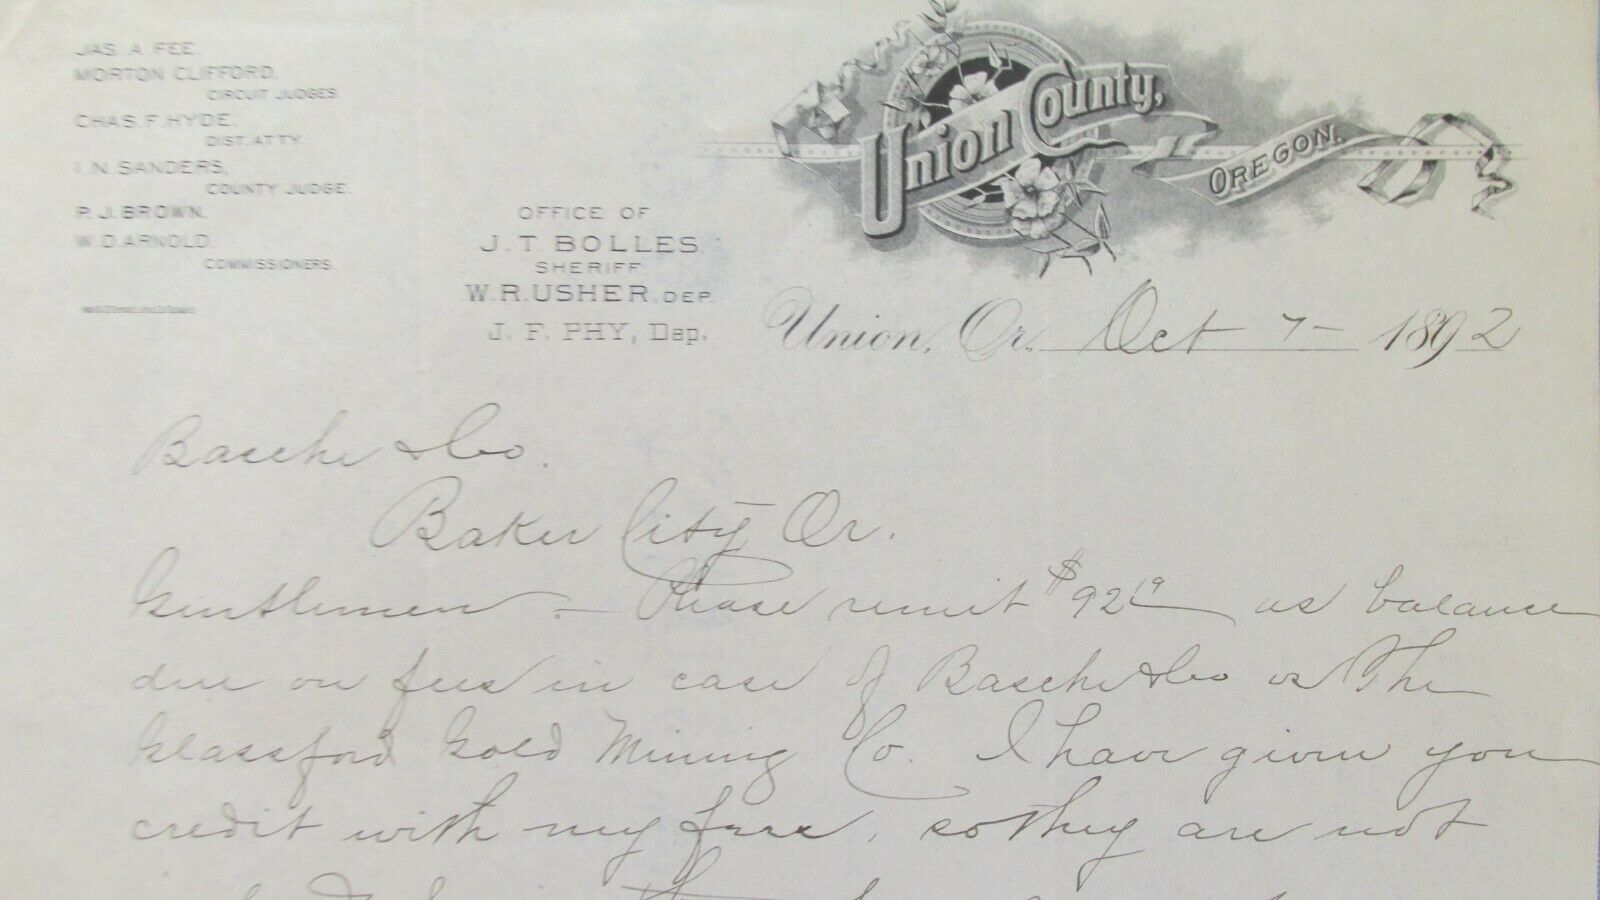 JAS. A. FEE.
MORTON CLIFFORD,
CIRCUIT JUDGES.
CHAS. F. HYDE.
DIST. ATTY.
I. N. SANDERS,
COUNTY JUDGE.
P. J. BROWN.
W. D. ARNOLD.
COMMISSIONERS.
OFFICE OF
J. T. BOLLES.
SHERIFF.
W. R. USHER. DEP.
J. F. PHY, Dep.
Union County,
OREGON.
Union, Or. Oct 7- 1892
Basche & Co.
Baker City Or.
Gentlemen - Please remit $92 as balance
due on fees in case of Basche & Co vs The
Glassford Gold Mining Co. I have given you
credit with my fees, so they are not